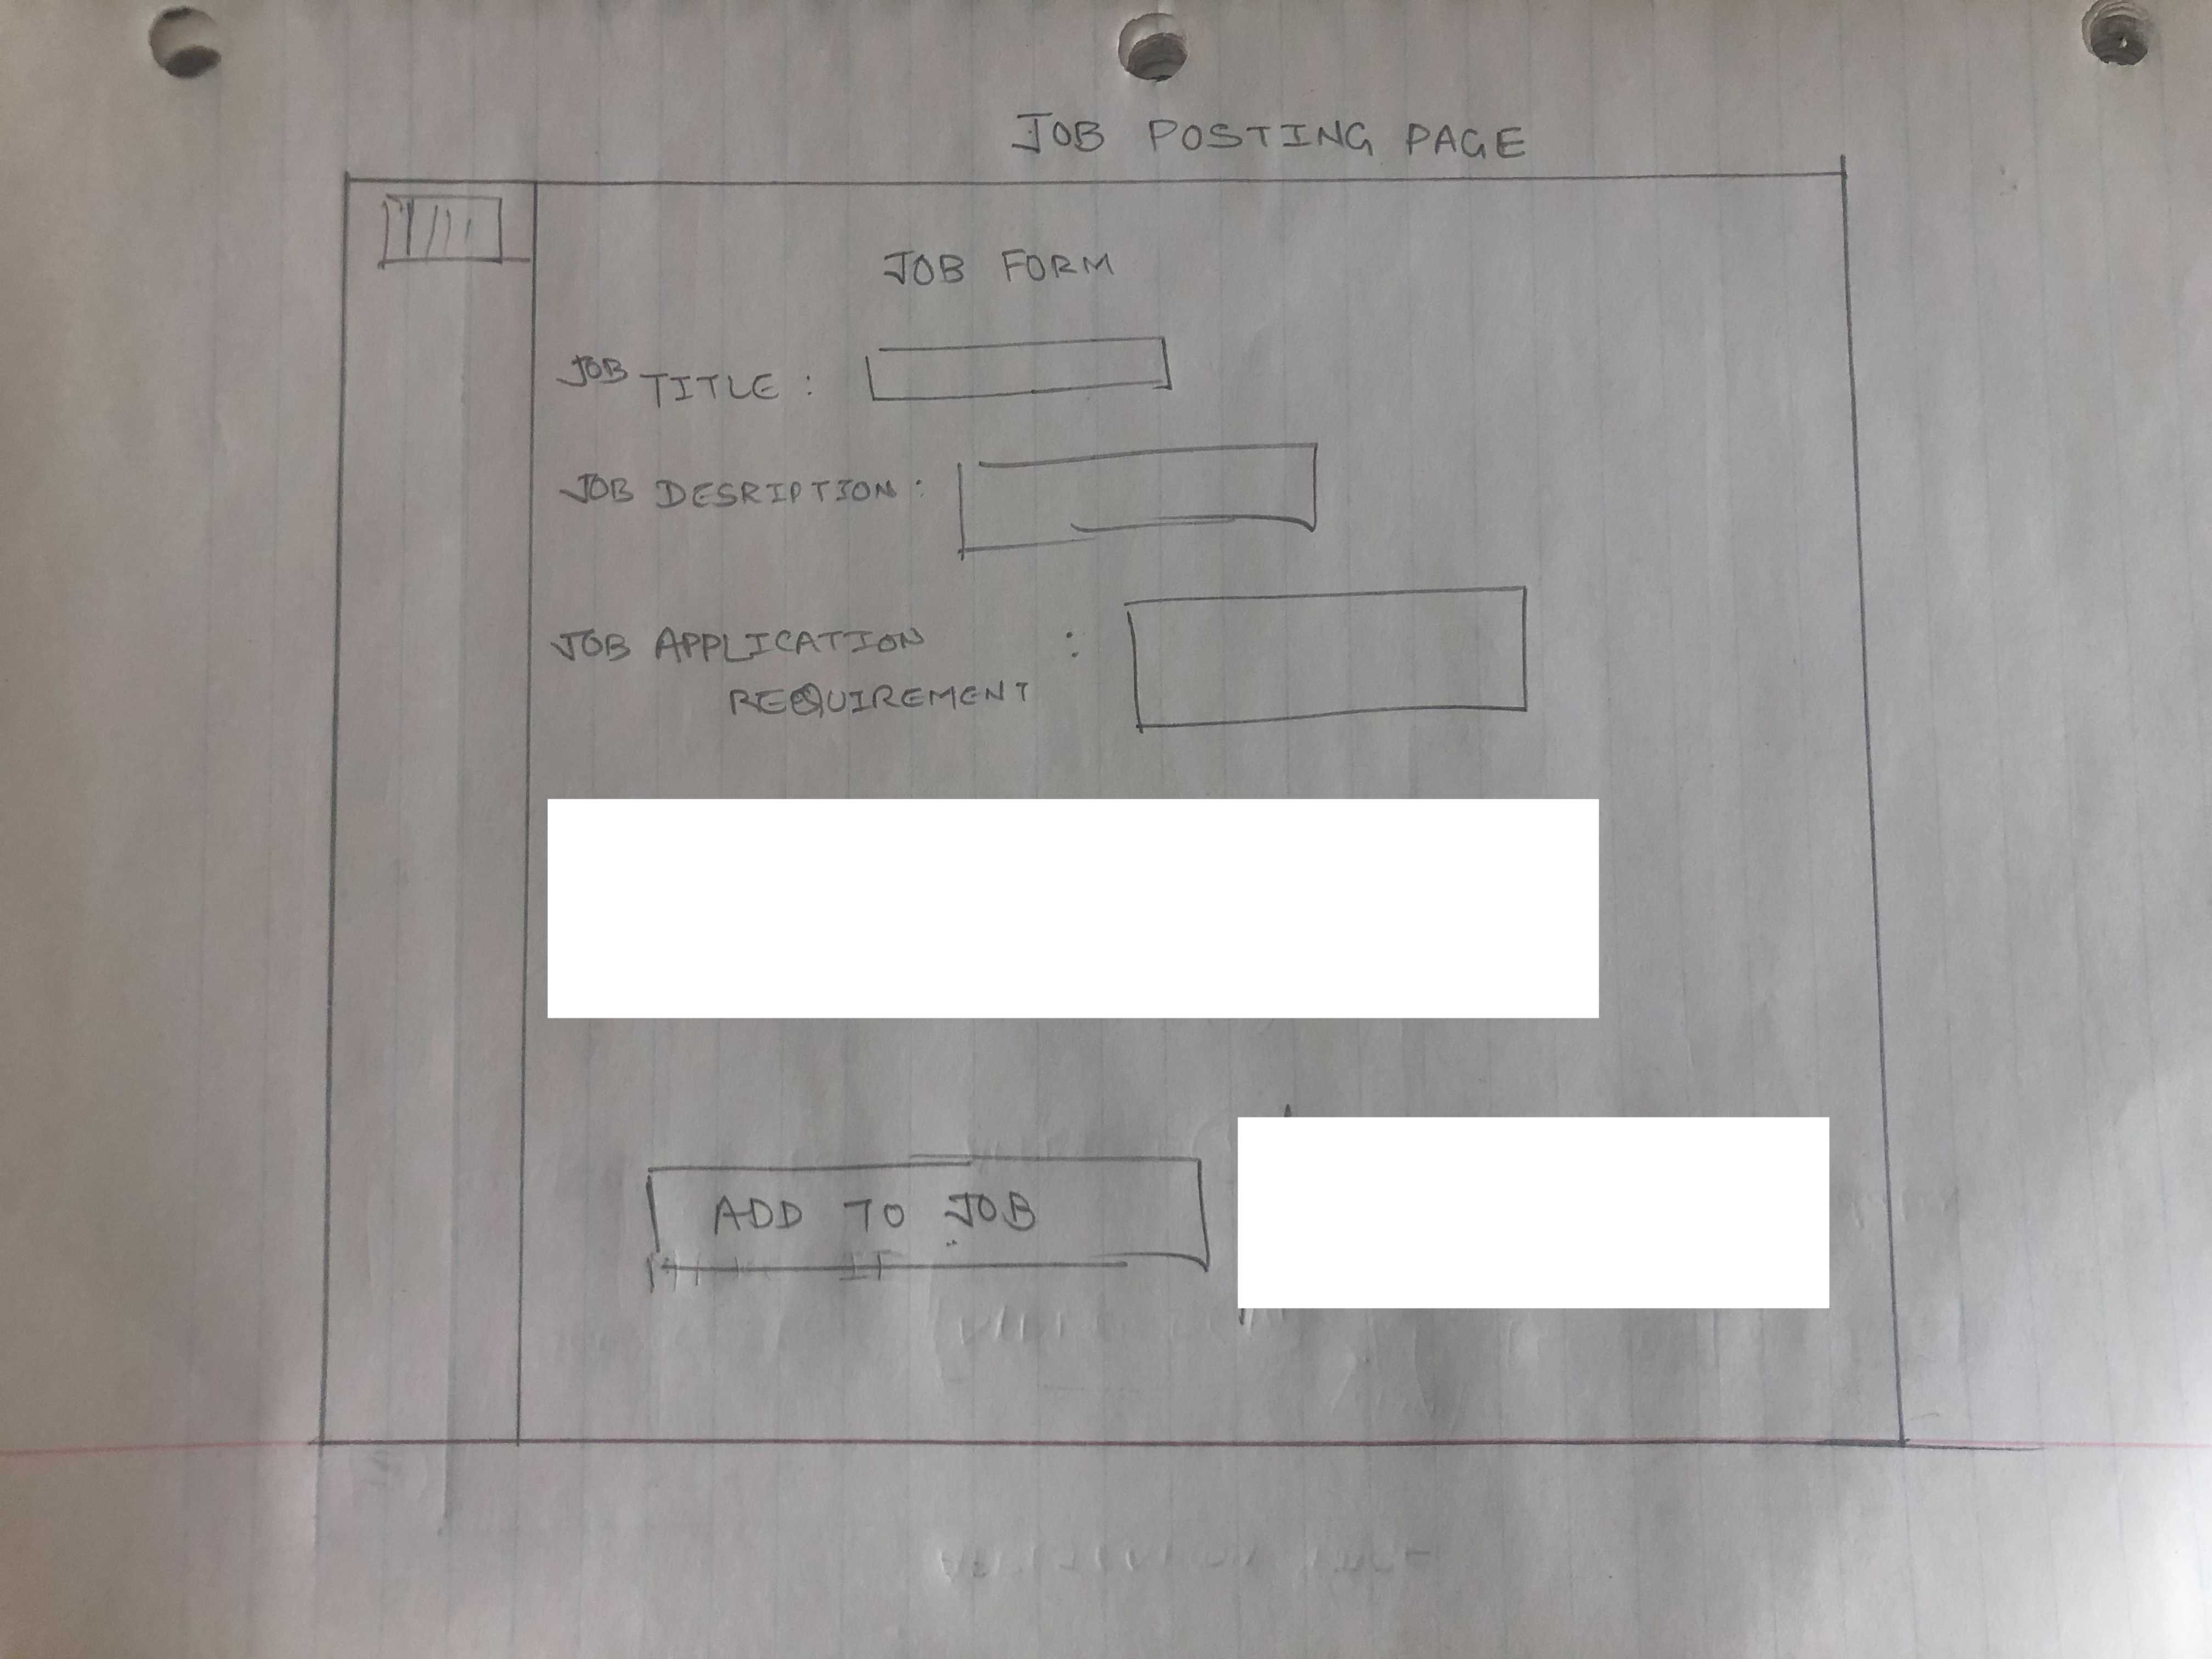 JOB POSTING PAGE
JOB FORM
JOB TITLE :
JOB DESRIPTION :
JOB APPLICATION :
REQUIREMENT
ADD TO JOB